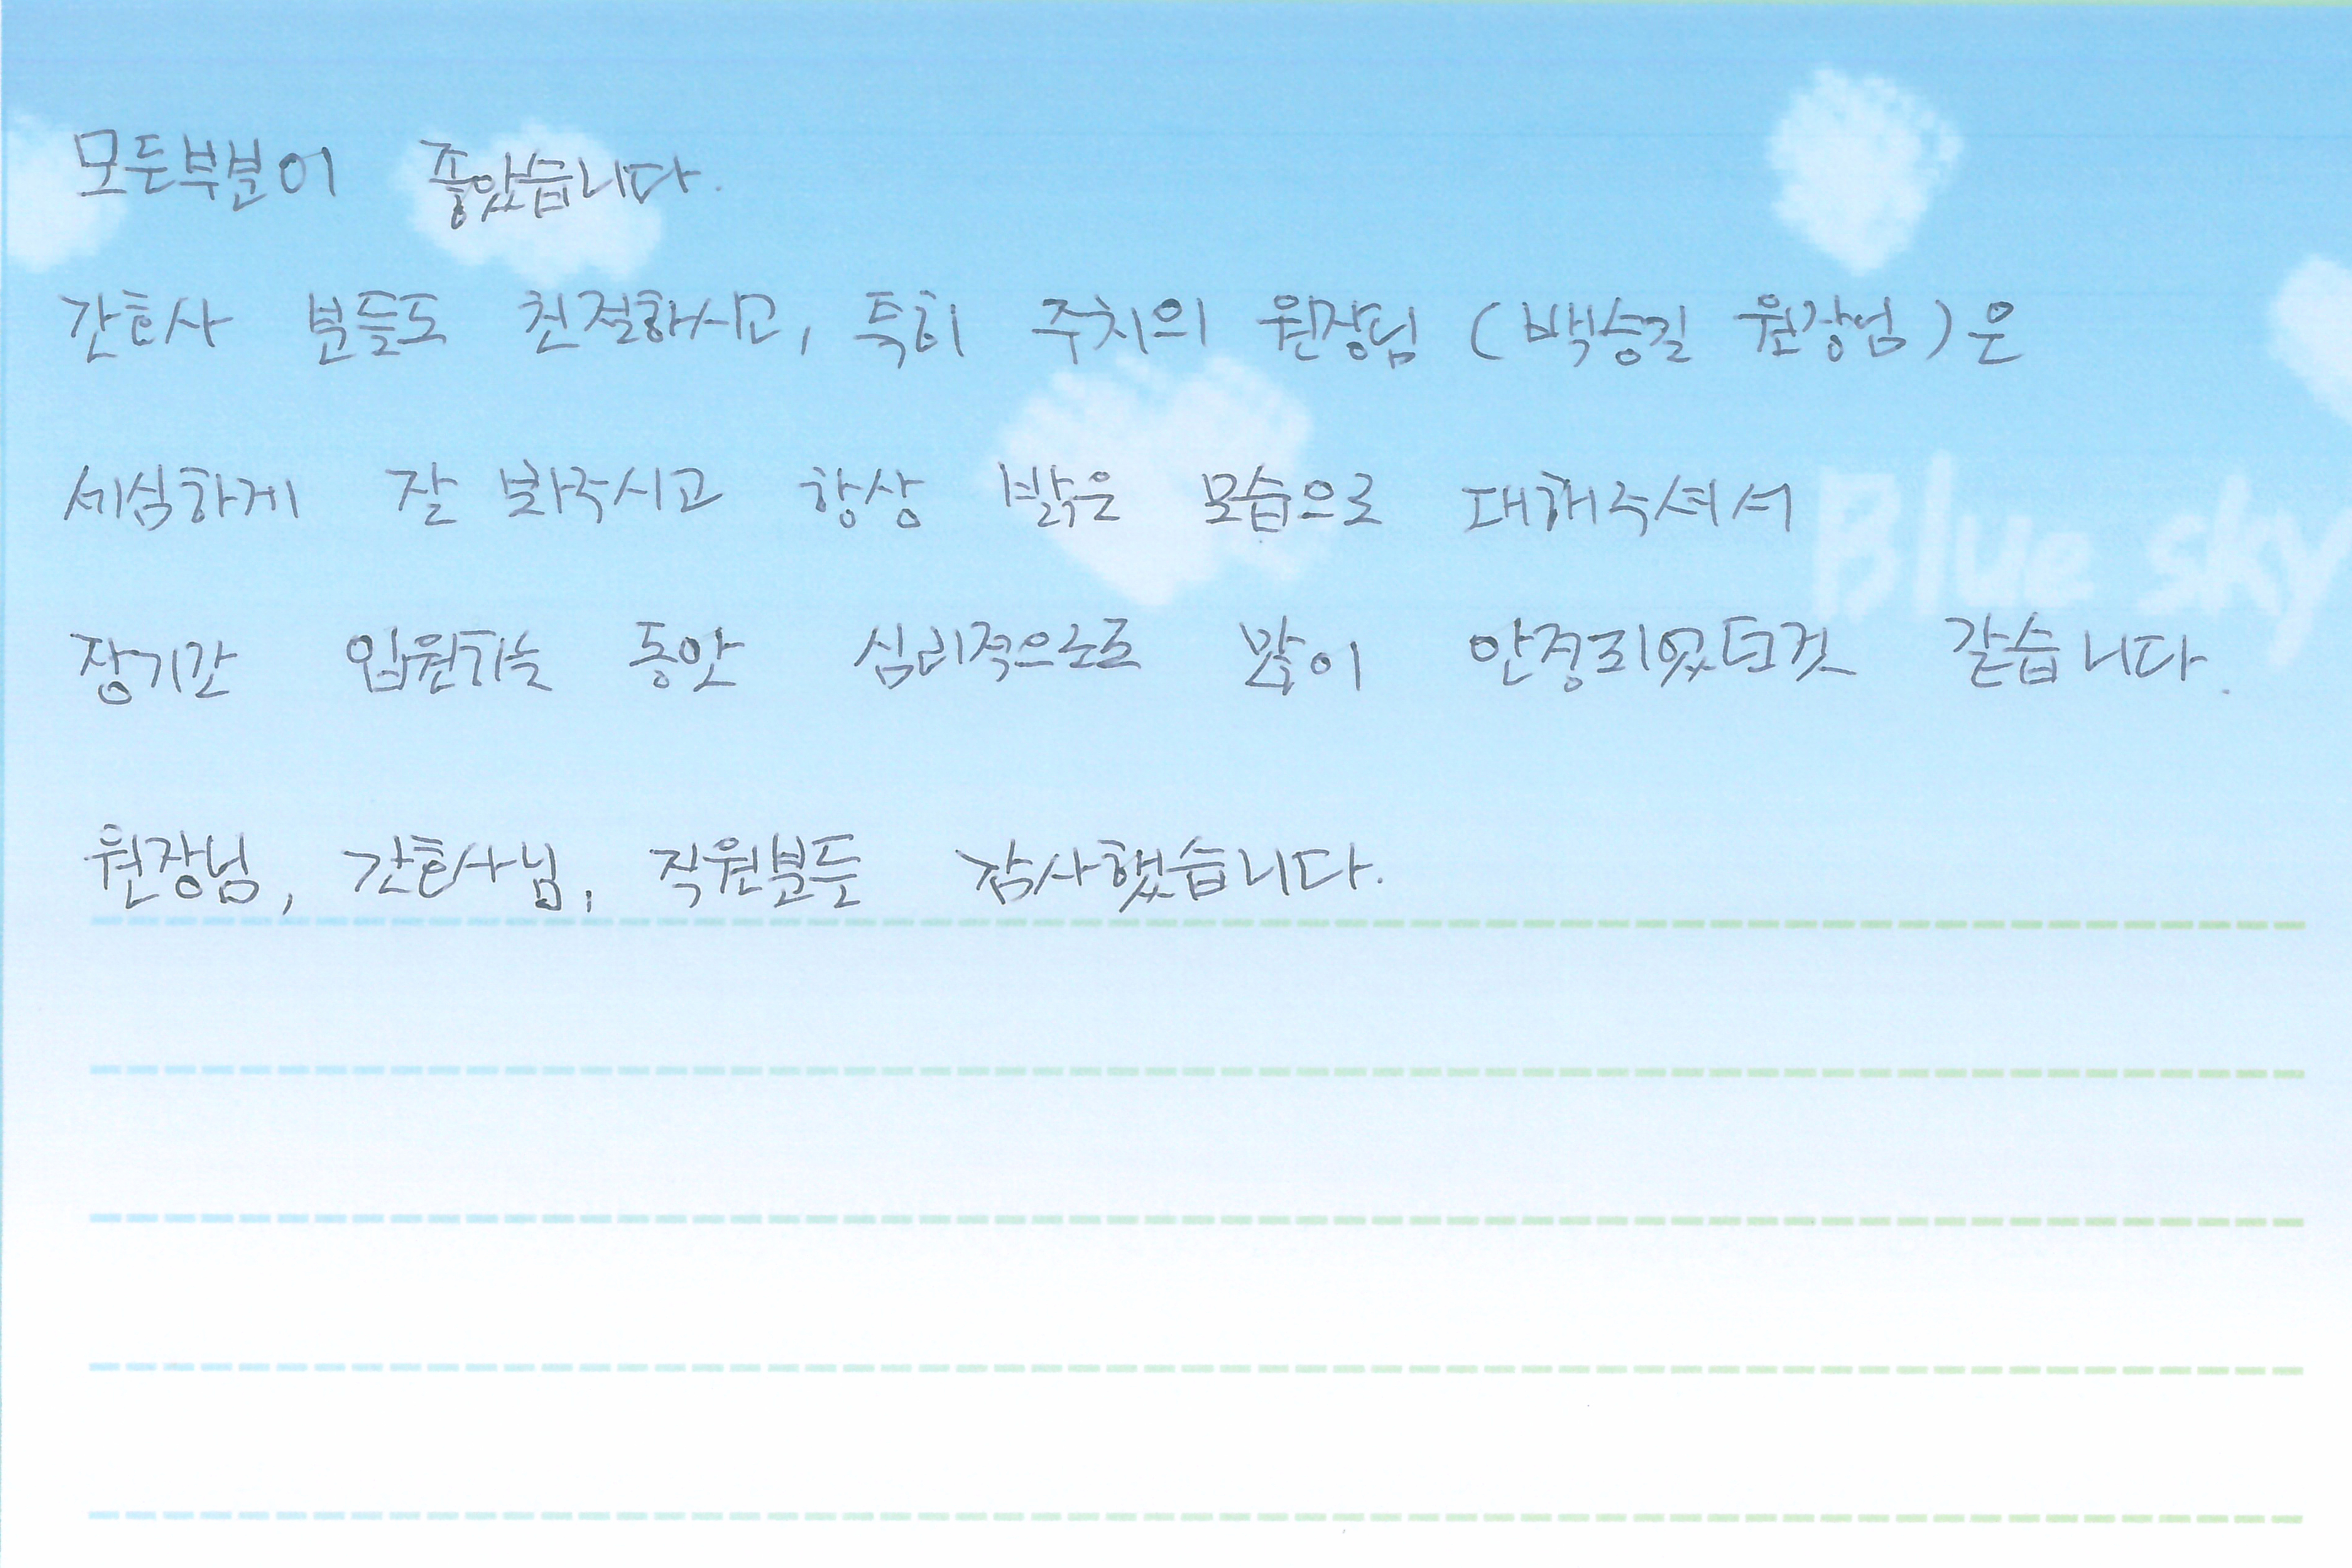 모든부분이 좋았습니다.
간호사 분들도 친절하시고, 특히 주치의 원장님 (백승길 원장님)은
세심하게 잘 봐주시고 항상 밝은 모습으로 대해주셔서
Blue sky
장기간 입원하는 동안 심리적으로 많이 안정되었던것 같습니다.
원장님, 간호사님, 직원분들 감사했습니다.